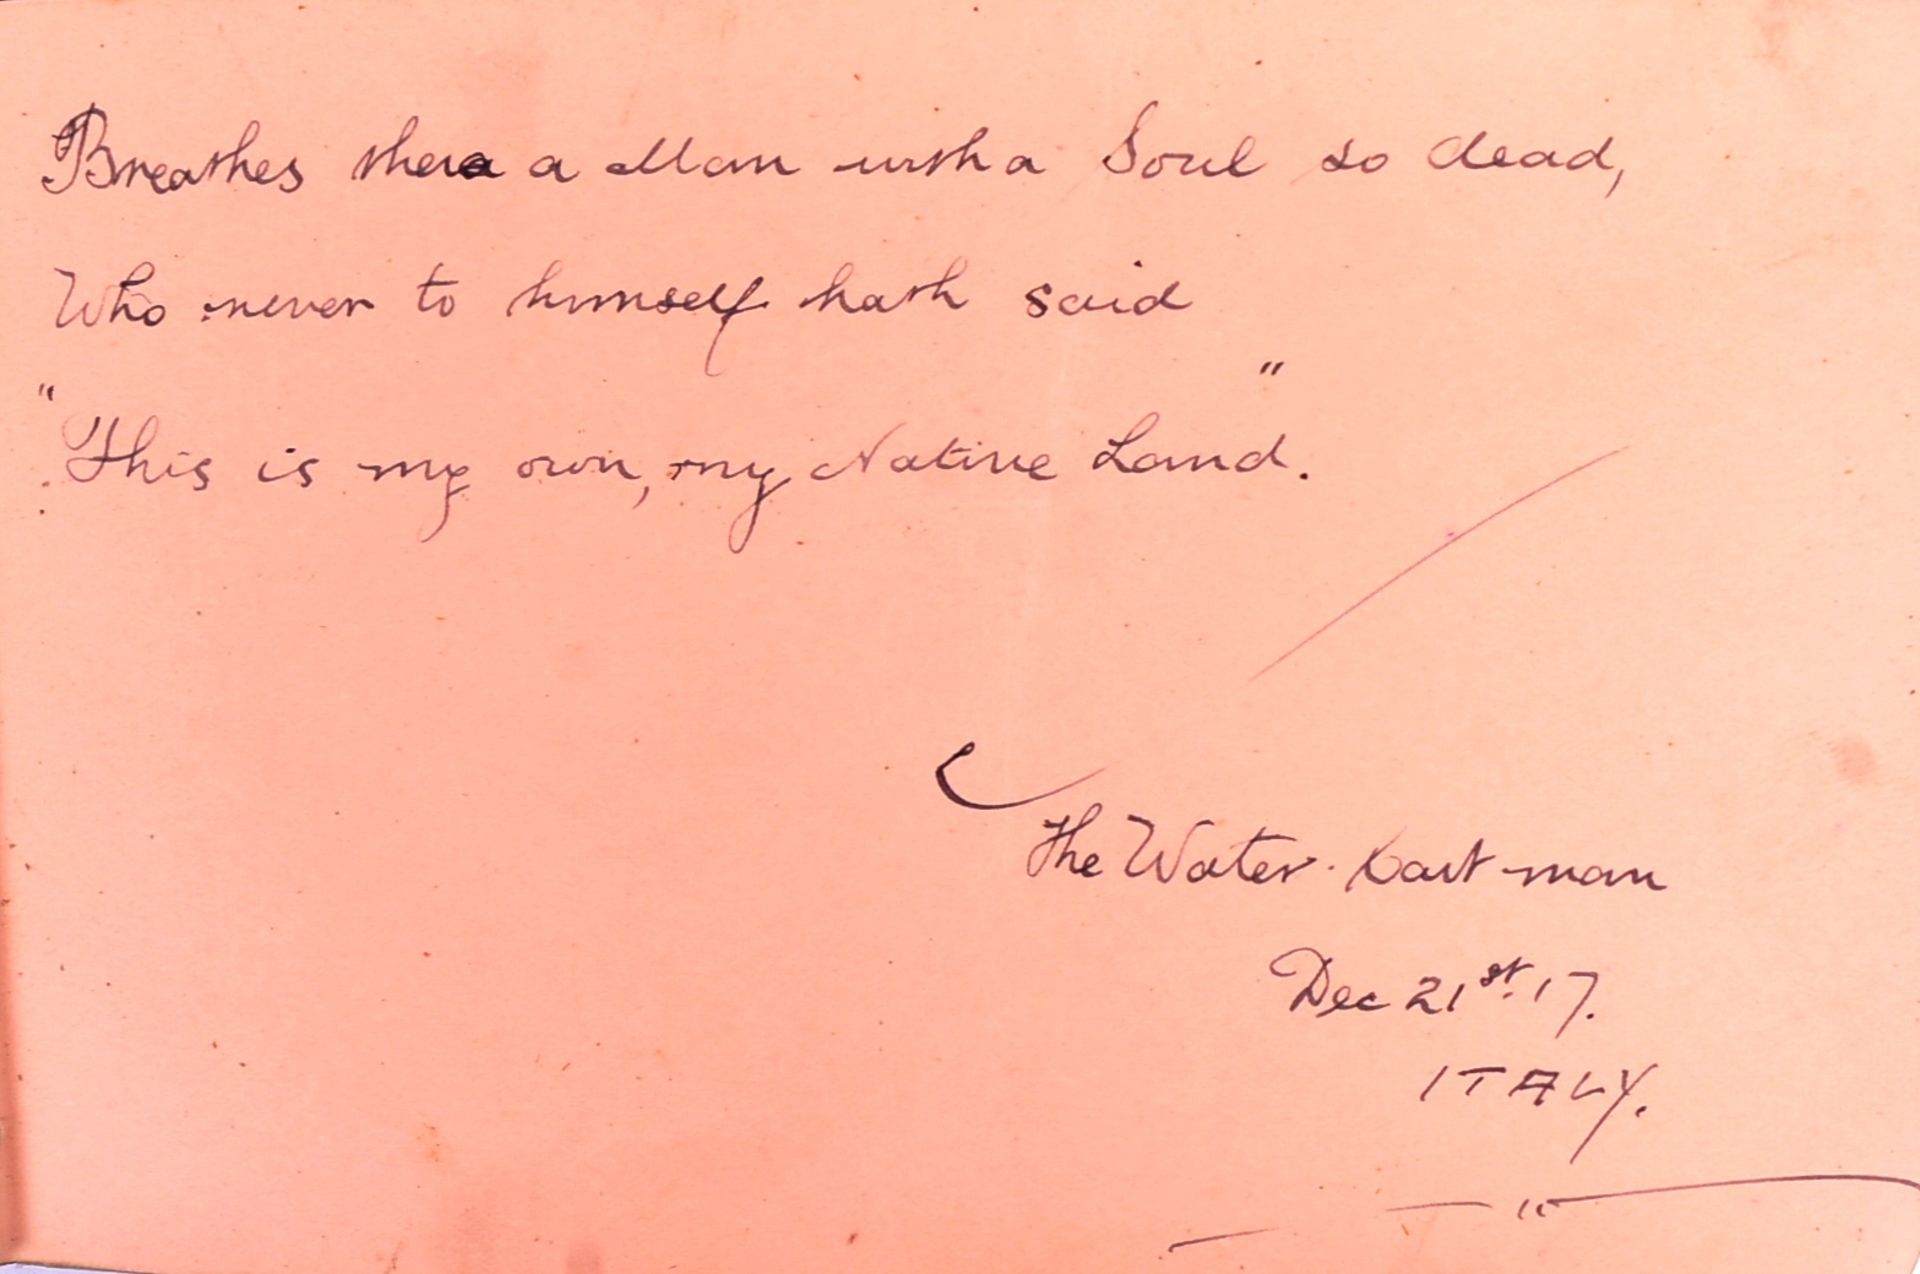 Breathes there a Man with a Soul so dead,
Who never to himself hath said
"This is my own, my Native Land."
The Water. Cart man
Dec 21st. 17.
ITALY.